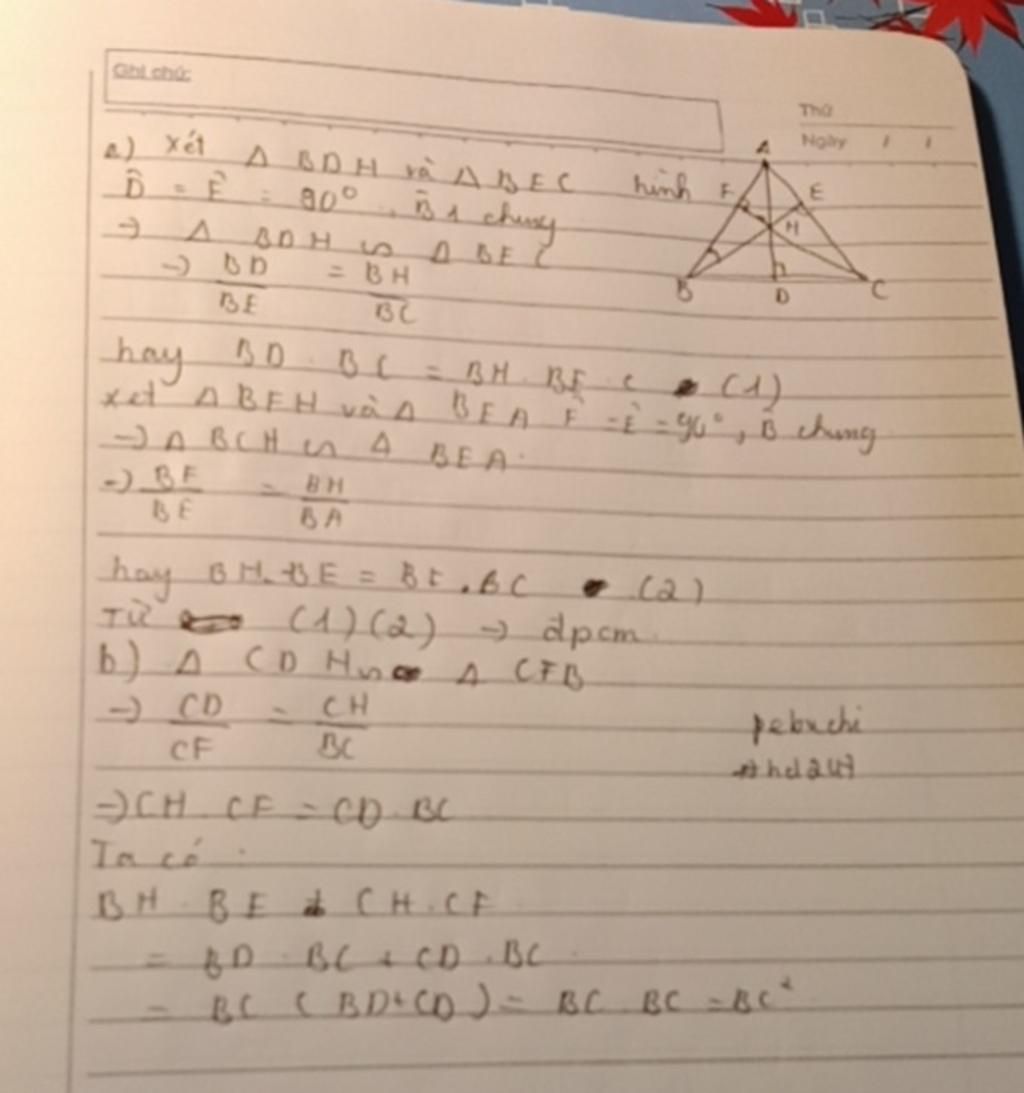 Ghi chú:
Thứ
Ngày / /
a) Xét Δ BDH và Δ BEC hình
D̂ = Ê = 90°, B̂1 chung
→ Δ BDH ∽ Δ BEC
→ BD/BE = BH/BC
A
F E
H
B D C
hay BD . BC = BH . BE (1)
xét Δ BFH và Δ BEA F̂ = Ê = 90°, B̂ chung
→ Δ BCH ∽ Δ BEA.
→ BF/BE = BH/BA
hay BH . BE = BF . BC (2)
Từ (1)(2) → đpcm
b) Δ CDH ∽ Δ CFB
→ CD/CF = CH/BC
pebuchi
→ CH . CF = CD . BC
Ta có :
BH . BE + CH . CF
= BD . BC + CD . BC
= BC ( BD+CD ) = BC . BC = BC²